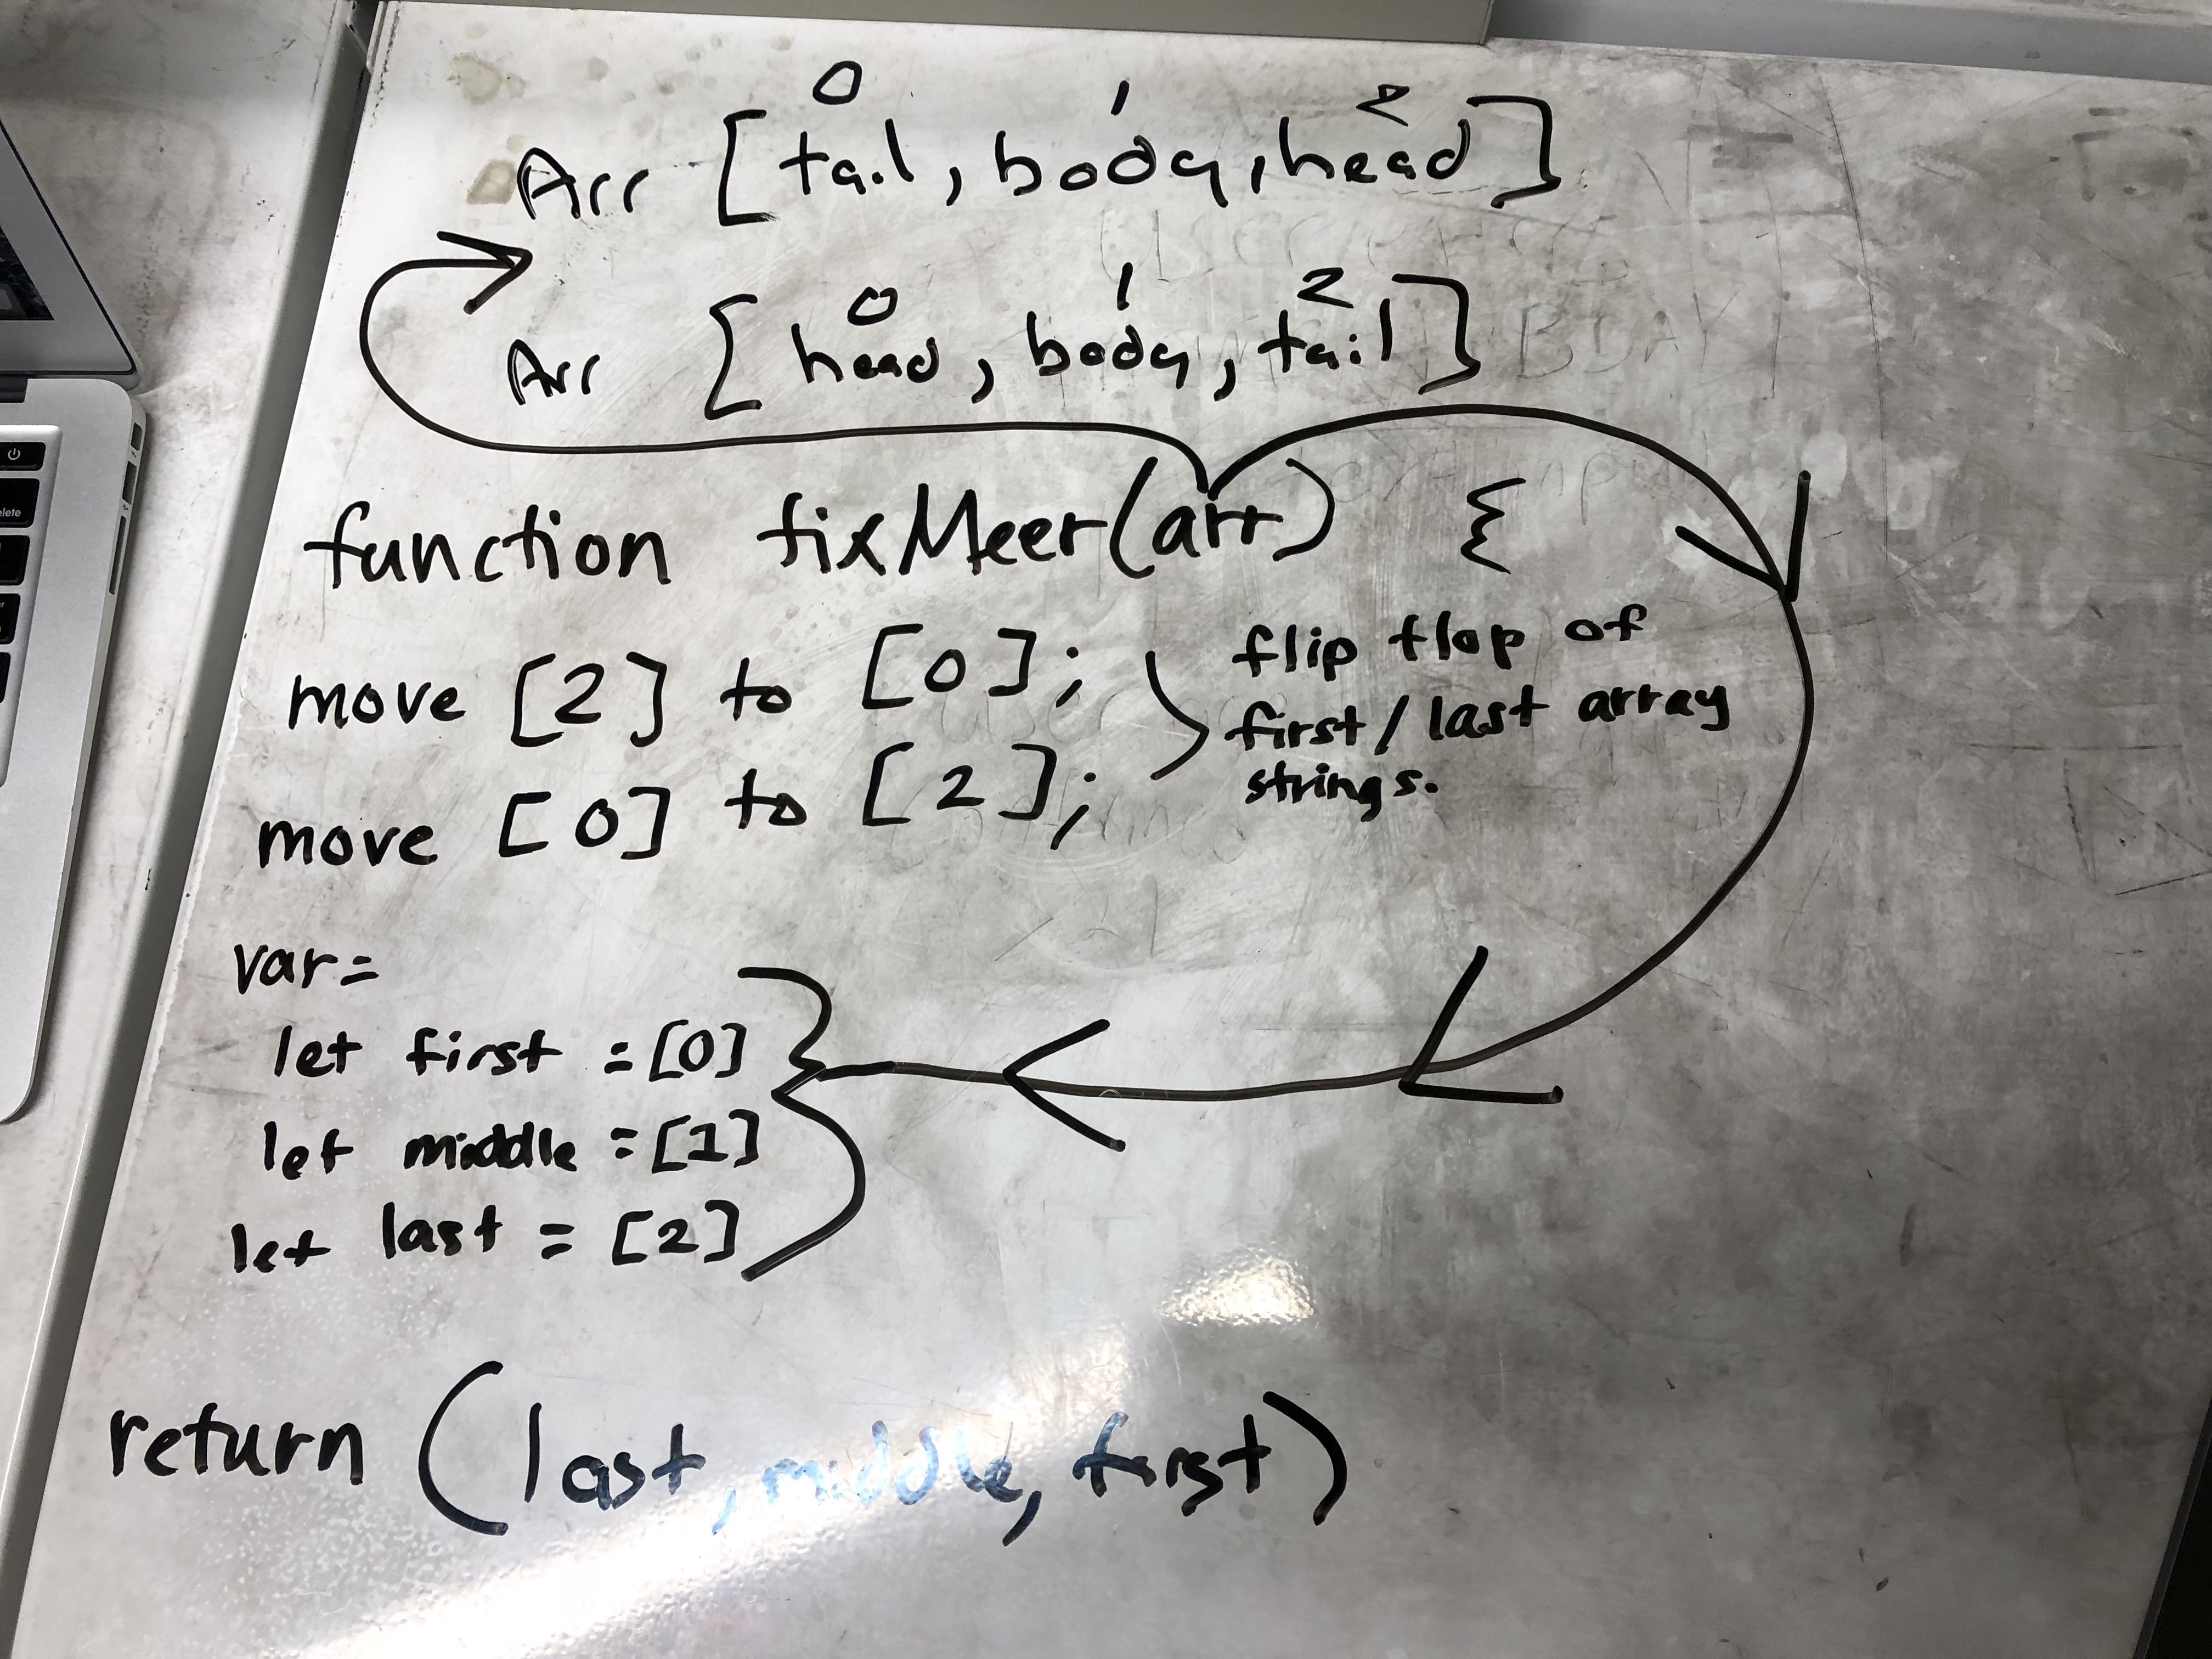 0 1 2
Arr [tail, body, head]
0 1 2
Arr [head, body, tail]
function fixMeer(arr) {
move [2] to [0];
move [0] to [2];
flip flop of
first/last array
strings.
var=
let first =[0]
let middle =[1]
let last = [2]
return (last, middle, first)
elete